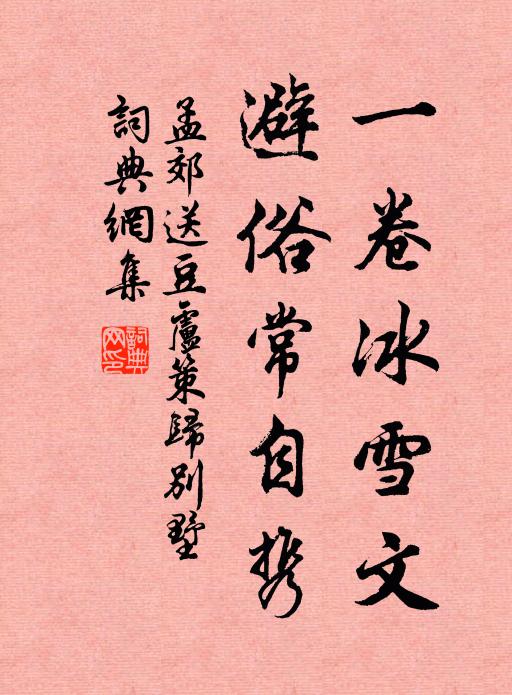 一卷冰雪文
避俗常自携
孟郊送豆盧策歸別墅
詞典網集
詞典網印